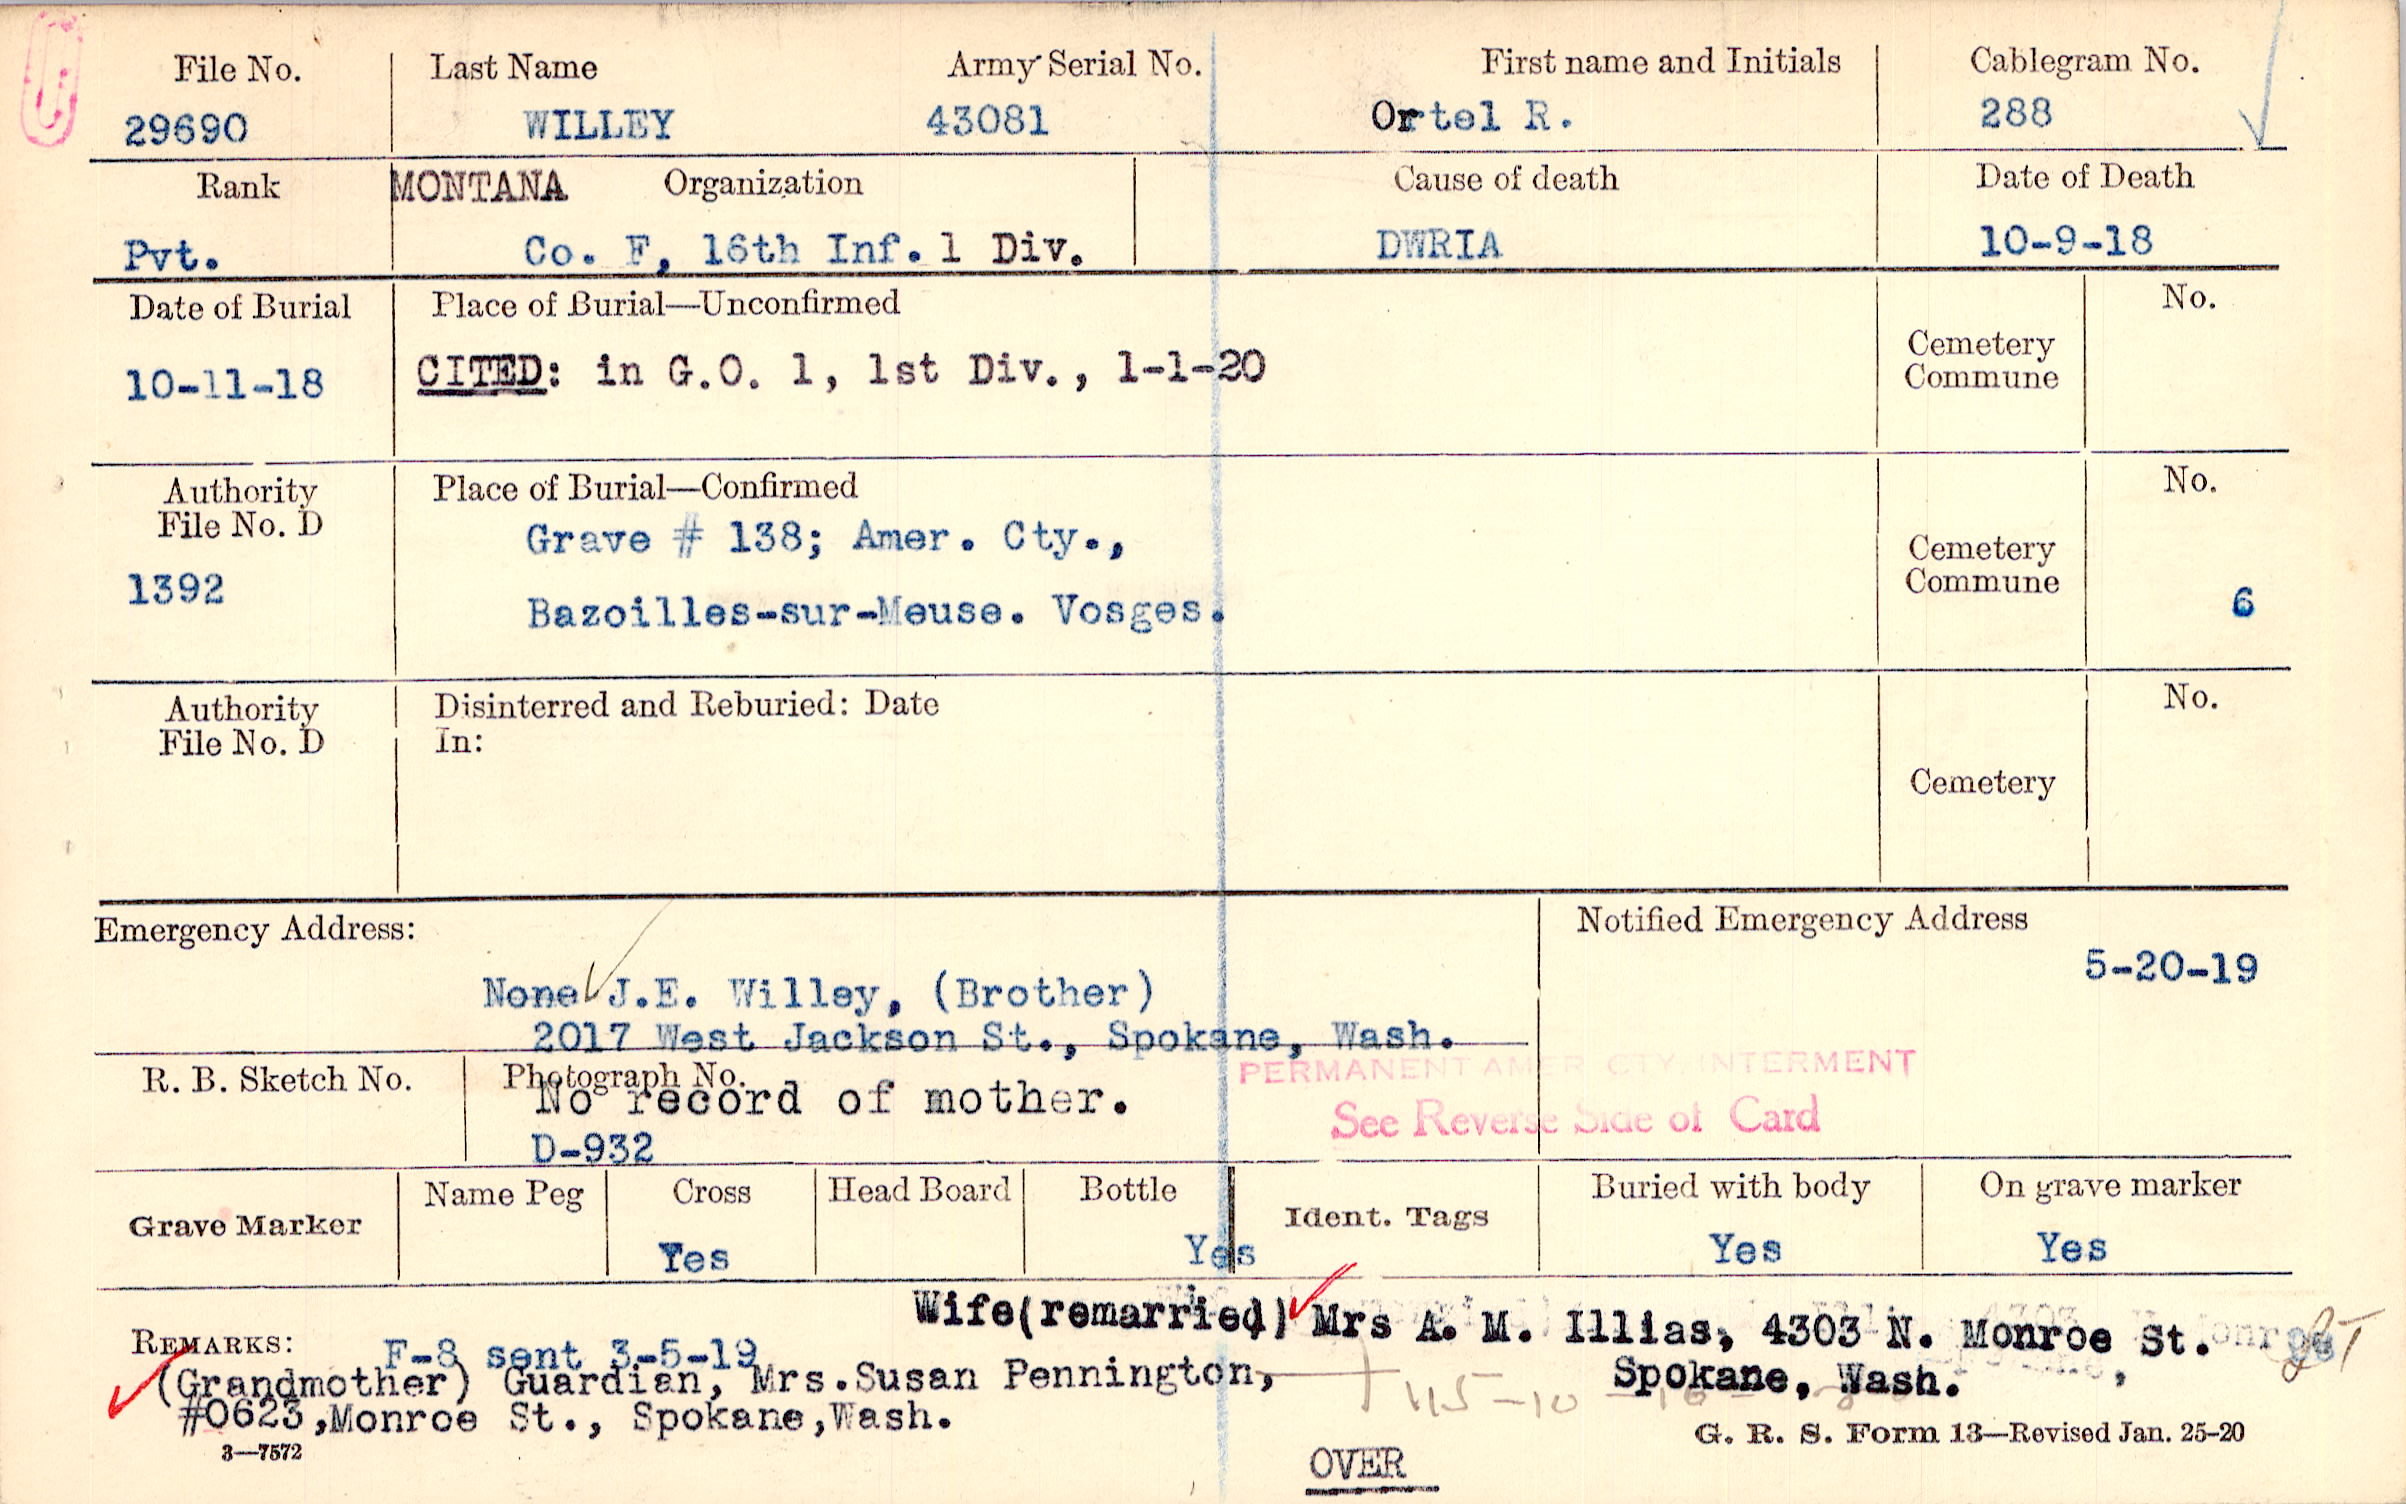 File No. Last Name Army Serial No. First name and Initials Cablegram No.
29690 WILLEY 43081 Ortel R. 288
Rank MONTANA Organization Cause of death Date of Death
Pvt. Co. F, 16th Inf. 1 Div. DWRIA 10-9-18
Date of Burial Place of Burial—Unconfirmed No.
10-11-18 CITED: in G.O. 1, 1st Div., 1-1-20
Cemetery
Commune
Authority Place of Burial—Confirmed No.
File No. D
Grave # 138; Amer. Cty.,
Cemetery
1392 Commune
Bazoilles-sur-Meuse. Vosges. 6
Authority Disinterred and Reburied: Date No.
File No. D In:
Cemetery
Emergency Address: Notified Emergency Address
5-20-19
None J.E. Willey, (Brother)
2017 West Jackson St., Spokane, Wash.
PERMANENT AMER CTY. INTERMENT
R. B. Sketch No. Photograph No.
No record of mother.
See Reverse Side of Card
D-932
Grave Marker Name Peg Cross Head Board Bottle Ident. Tags Buried with body On grave marker
Yes Yes Yes Yes
Wife(remarried) Mrs A. M. Illias, 4303 N. Monroe St.
Spokane, Wash.
REMARKS: F-8 sent 3-5-19
(Grandmother) Guardian, Mrs.Susan Pennington,
#0623,Monroe St., Spokane,Wash.
3—7572
G. R. S. Form 13—Revised Jan. 25-20
OVER